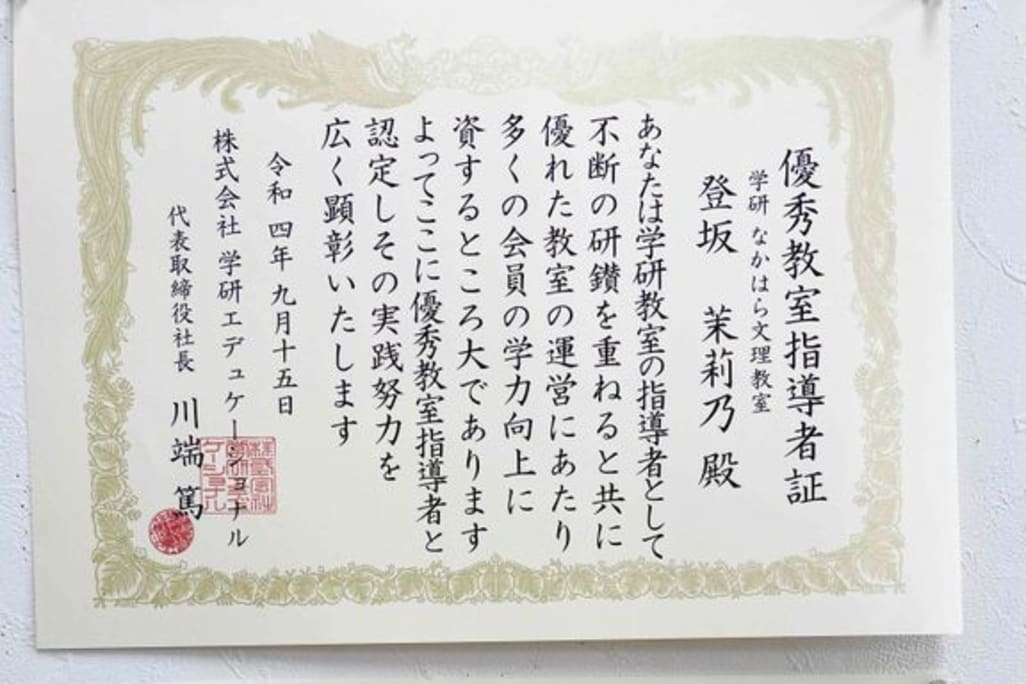 優秀教室指導者証
学研 なかはら文理教室
登坂 茉莉乃 殿
あなたは学研教室の指導者として
不断の研鑽を重ねると共に
優れた教室の運営にあたり
多くの会員の学力向上に
資するところ大であります
よってここに優秀教室指導者と
認定しその実践努力を
広く顕彰いたします
令和四年九月十五日
株式会社 学研エデュケーショナル
代表取締役社長 川端 篤
株式会社学研エデュケーショナル